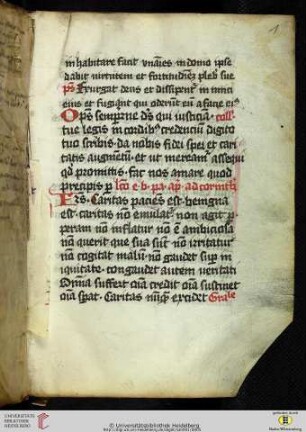 inhabitare facit vnāies in domo ipse
dabit virtutem et fortitudinez plebi sue
ps Exurgat deus et dissipent' inimici
eius et fugiant qui oderunt eū a facie ei9
Ops sempiterne ds qui iusticiā coll
tue legis in cordib9 credenciū digito
tuo scribis da nobis fidei spei et cari
tatis augmētū et ut mereamr assequi
qd promittis fac nos amare quod
precipis p lcō e b pa ap ad corinth
Frs Caritas paciēs est benigna
est caritas nō emulat' non agit p
peram nō inflatur nō ē ambiciosa
nō querit que sua sūt nō irritatur
nō cogitat malū nō gaudet sup in
iquitate congaudet autem veritati
Omīa suffert oīa credit oīa sustinet
oīa spat Caritas nūqz excidet Grale
1
UNIVERSITÄTS-
BIBLIOTHEK
HEIDELBERG
© Universitätsbibliothek Heidelberg